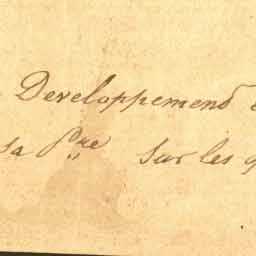 Developpement
sa Pne sur les